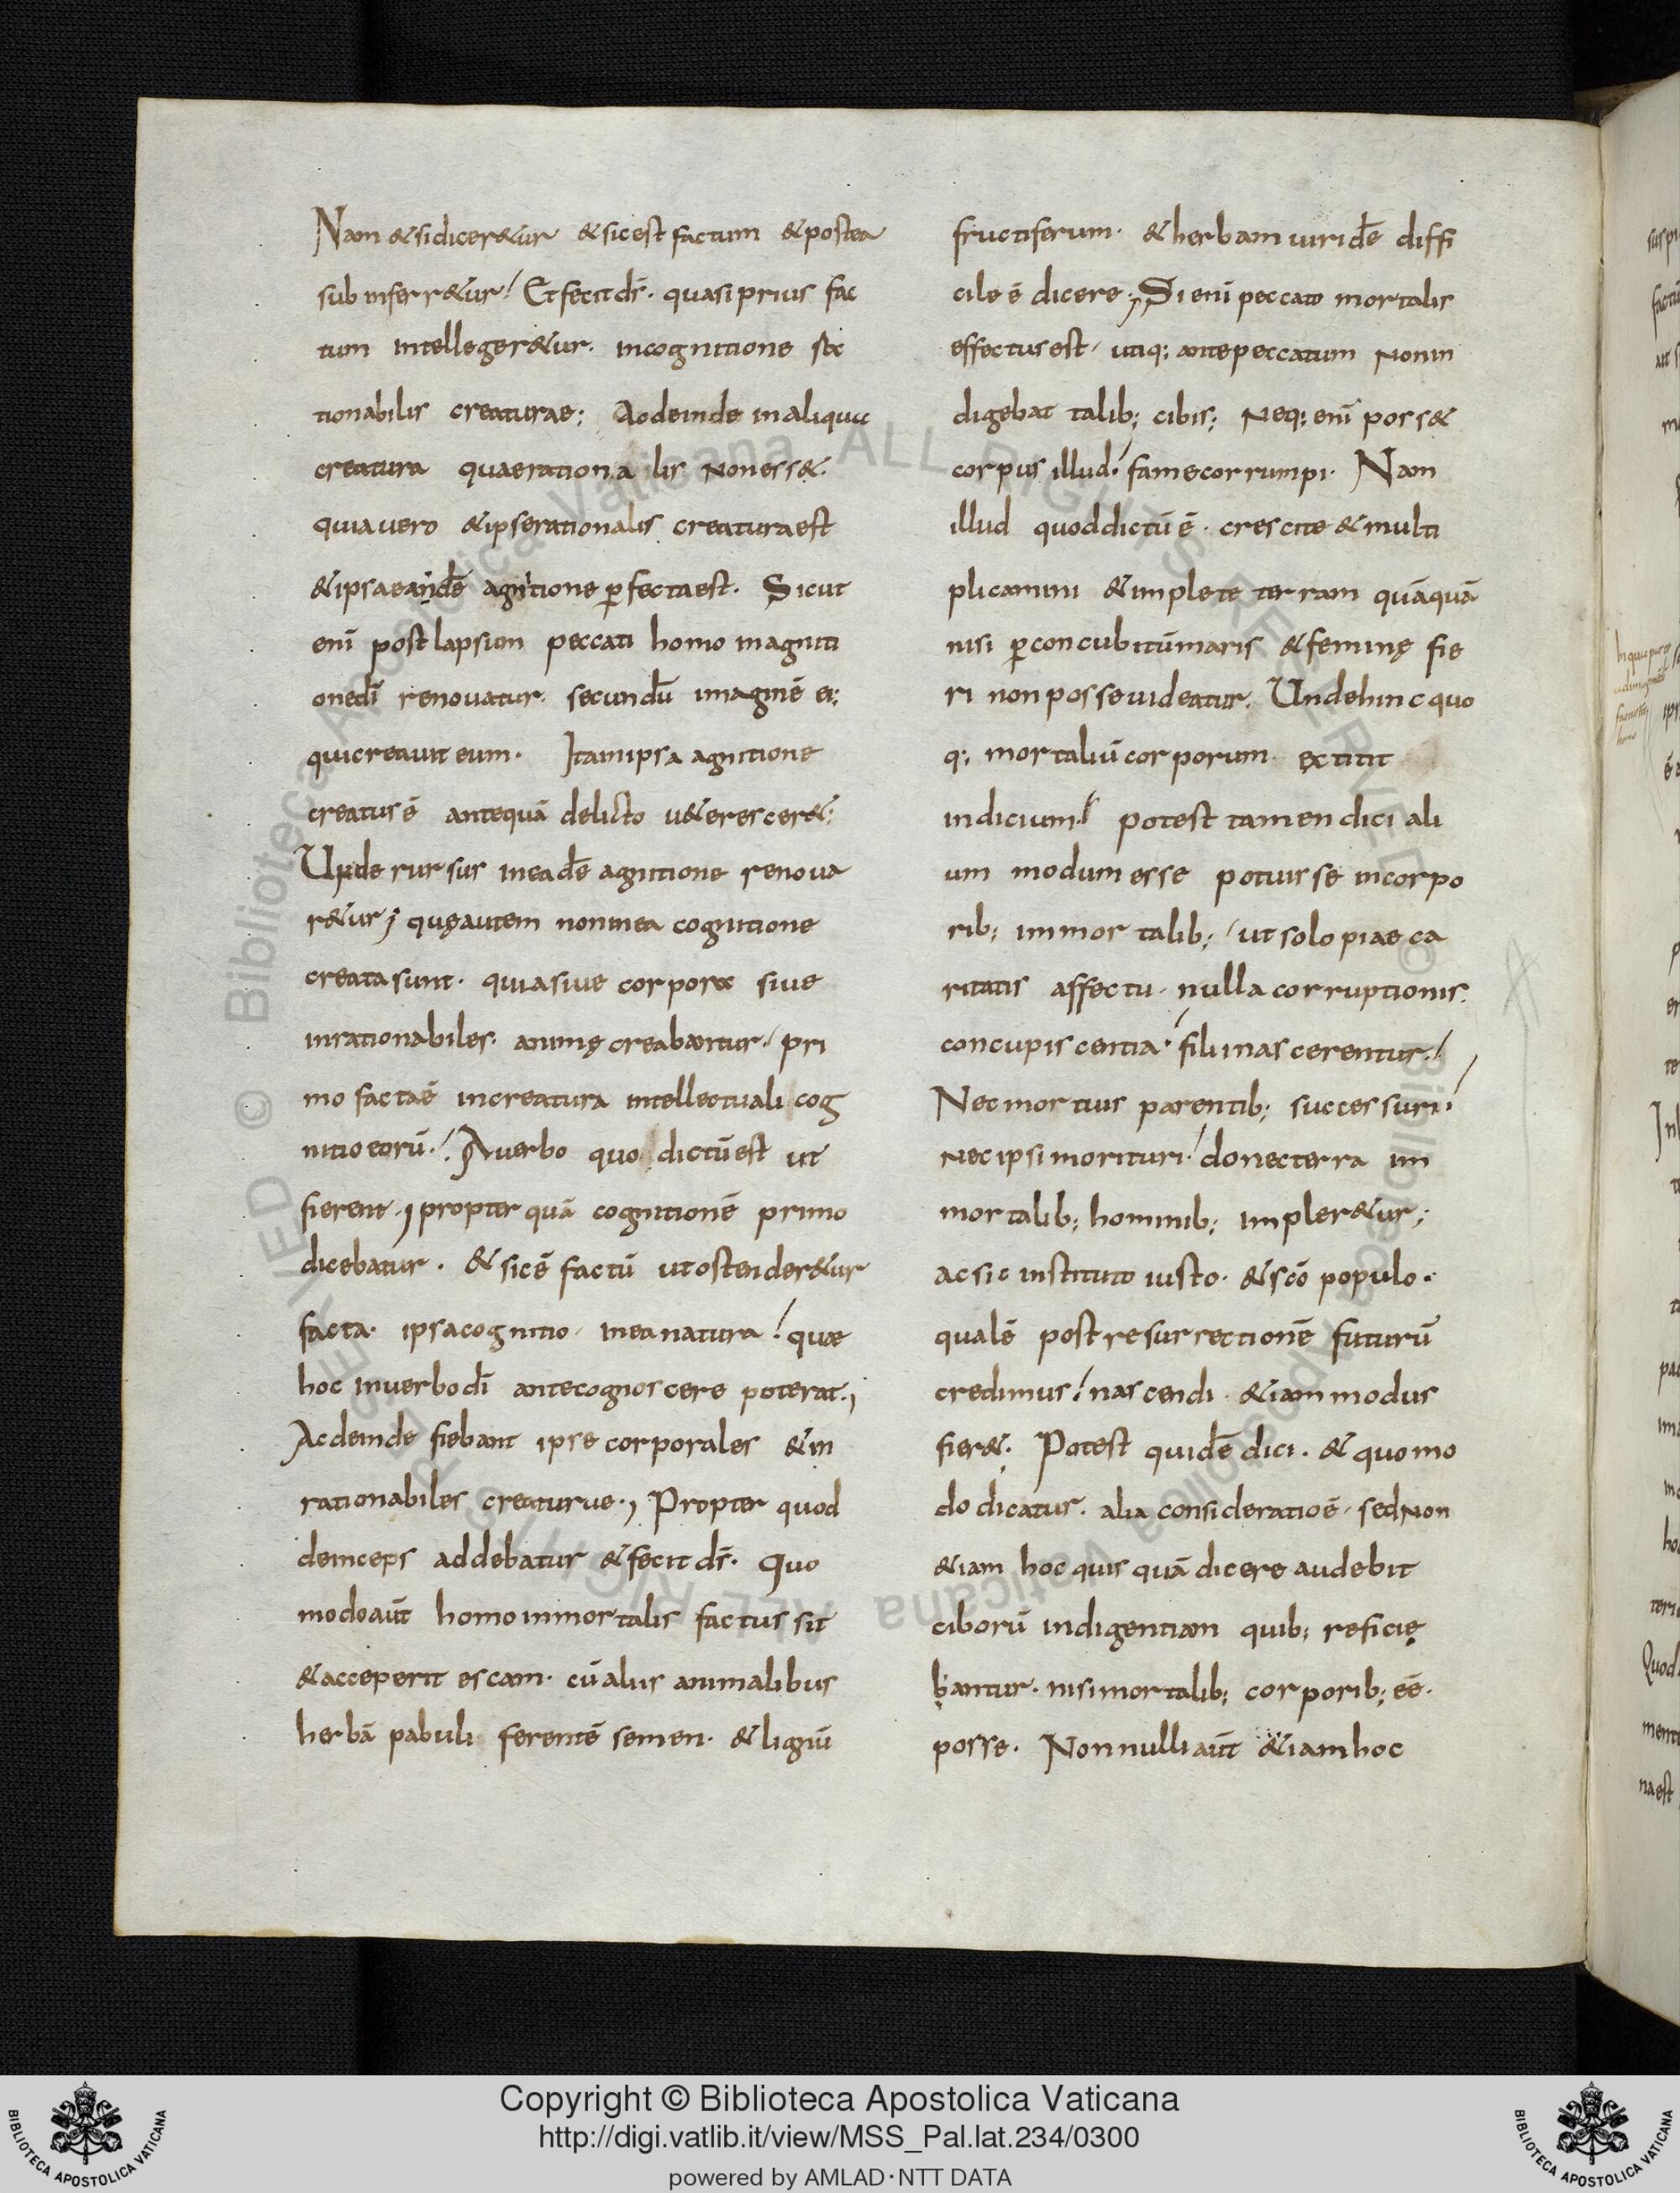 Nam & si dicer&ur & sic est factum & postea
subinferr&ur Et fecit ds̄· quasi prius fac
tum intelleger&ur· in cognitione
tionabilis creaturae; Ac deinde in aliqua
creatura quae rationalis non ess&·
quia uero & ipse rationalis creatura est
& ipsa eandē agnitione ꝑfecta est· Sicut
enī post lapsum peccati homo in agniti
one dī renouatur· secundū imaginē ei;
qui creauit eum· Ita in ipsa agnitione
creatus ē antequā delicto u&eresceret&;
Unde rursus in eadē agnitione renoua
r&ur; quę autem non in ea cognitione
creata sunt· quia siue corpora siue
inrationabiles· animę creabantur· pri
mo facta ē in creatura intellectuali cog
nitio eorū· A uerbo quo dictū est ut
fierent· propter quā cognitionē primo
dicebatur· & sic ē factū ut ostender&ur
facta· ipsa cognitio· in ea natura quae
hoc in uerbo dī ante cognoscere poterat·,
Ac deinde fiebant ipse corporales & in
rationabiles creaturae·, Propter quod
deinceps addebatur & fecit ds̄· Quo
modo aūt homo inmortalis factus sit
& acceperit escam· cū aliis animalibus
herbā pabuli ferentē semen· & lignū
fructiferum· & herbam uiridē diffi
cile ē dicere; Si enī peccato mortalis
effectus est· utiq; ante peccatum non in
digebat talib; cibis; Neq; enī poss&
corpus illud· fame corrumpi· Nam
illud quod dictū ē· crescite & multi
plicamini & implete terram quāquā
nisi ꝑ concubitū maris & feminę fie
ri non posse uideatur· Unde hinc quo
q; mortaliū corporum extitit
indicium· potest tamen dici ali
um modum esse potuisse in corpo
rib; immortalib; ut solo piae ca
ritatis affectu· nulla corruptionis
concupiscentia· filii nascerentur·
Nec mortuis parentib; successuri·
nec ipsi morituri· donec terra im
mortalib; hominib; impler&ur;
ac sic instituto iusto· & scō populo·
qualē post resurrectionē futurū
credimus· nascendi &iam modus
fier&· Potest quidē dici· & quomo
do dicatur· alia consideratio ē· sed non
&iam hoc quisquā dicere audebit
ciborū indigentiam quib; reficię
bantur· nisi mortalib; corporib; eē·
posse· Nonnulli aūt &iam hoc
Copyright © Biblioteca Apostolica Vaticana
http://digi.vatlib.it/view/MSS_Pal.lat.234/0300
powered by AMLAD·NTT DATA
BIBLIOTECA APOSTOLICA VATICANA
BIBLIOTECA APOSTOLICA VATICANA